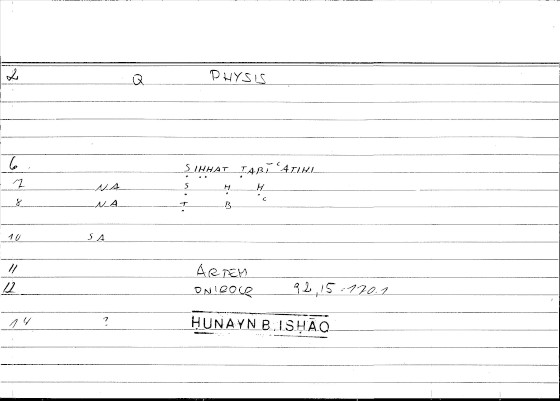 2 Q PHYSIS
6. ṢIḤḤAT ṬABĪʿATIHI
7 NA Ṣ Ḥ Ḥ
8 NA Ṭ B ʿ
10 SA
11 ARTEM
12 ONIROCR 92,15-170.1
14 ? ḤUNAYN B. ISḤĀQ